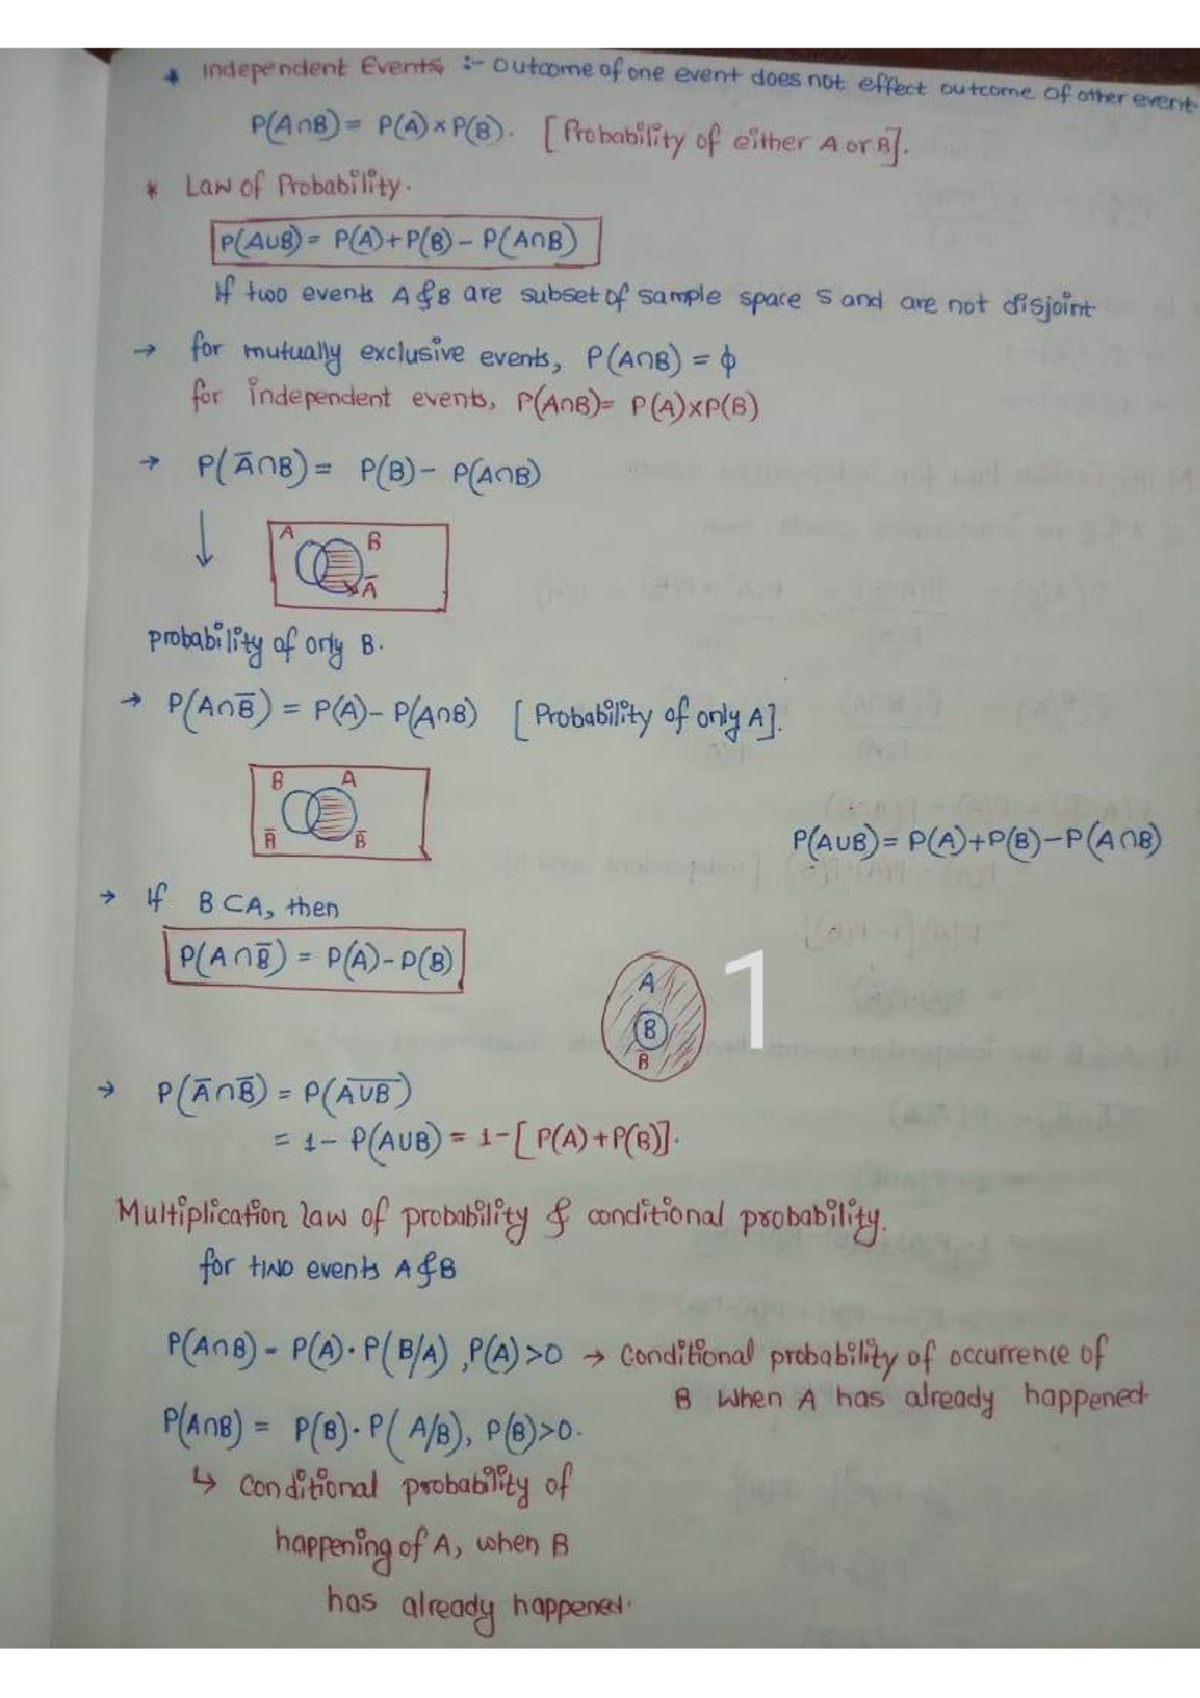 * Independent Events :- Outcome of one event does not effect outcome of other event
P(A∩B) = P(A) × P(B). [Probability of either A or B].
* Law of Probability.
P(A∪B) = P(A)+P(B) - P(A∩B)
If two events A & B are subset of sample space S and are not disjoint
→ for mutually exclusive events, P(A∩B) = ϕ
for independent events, P(A∩B) = P(A)×P(B)
→ P(A̅∩B) = P(B) - P(A∩B)
↓
A B
A̅
probability of only B.
→ P(A∩B̅) = P(A) - P(A∩B) [Probability of only A].
B A
A̅ B̅
P(A∪B) = P(A)+P(B)-P(A∩B)
→ If B⊂A, then
P(A∩B̅) = P(A)-P(B)
A
B
B̅
1
→ P(A̅∩B̅) = P(A̅∪̅B̅)
= 1- P(A∪B) = 1-[P(A)+P(B)].
Multiplication law of probability & conditional probability.
for two events A&B
P(A∩B) - P(A)·P(B/A), P(A)>0 → Conditional probability of occurrence of
B when A has already happened
P(A∩B) = P(B)·P(A/B), P(B)>0.
↳ Conditional probability of
happening of A, when B
has already happened.